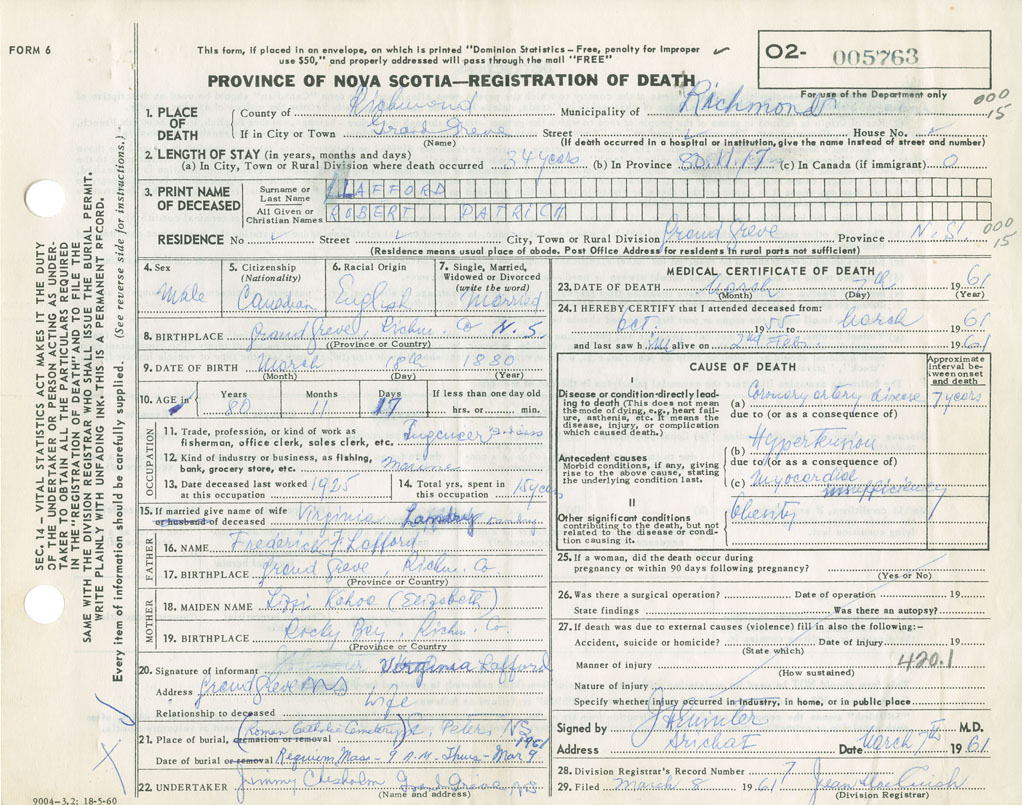 FORM 6
This form, if placed in an envelope, on which is printed "Dominion Statistics – Free, penalty for improper
use $50," and properly addressed will pass through the mail "FREE"
PROVINCE OF NOVA SCOTIA—REGISTRATION OF DEATH
O2- 005763
For use of the Department only
000
15
1. PLACE OF DEATH
County of Richmond Municipality of Richmond
If in City or Town Grand Greve Street House No.
(Name) (If death occurred in a hospital or institution, give the name instead of street and number)
2. LENGTH OF STAY (in years, months and days)
(a) In City, Town or Rural Division where death occurred 34 years (b) In Province 80.11.17 (c) In Canada (if immigrant) 0
3. PRINT NAME OF DECEASED
Surname or Last Name LAFFORD
All Given or Christian Names ROBERT PATRICH
RESIDENCE No Street City, Town or Rural Division Grand Greve Province N.S.
000
15
(Residence means usual place of abode. Post Office Address for residents in rural parts not sufficient)
4. Sex
Male
5. Citizenship (Nationality)
Canadian
6. Racial Origin
English
7. Single, Married, Widowed or Divorced (write the word)
Married
8. BIRTHPLACE Grand Greve, Richm. Co N.S.
(Province or Country)
9. DATE OF BIRTH March 18th 1880
(Month) (Day) (Year)
10. AGE in
Years Months Days If less than one day old
80 11 17 hrs. or min.
OCCUPATION
11. Trade, profession, or kind of work as
fisherman, office clerk, sales clerk, etc. Engeneer
12. Kind of industry or business, as fishing,
bank, grocery store, etc. Marine
13. Date deceased last worked at this occupation 1925
14. Total yrs. spent in this occupation 15 years
15. If married give name of wife
or husband of deceased Virginia Landry Landry
FATHER
16. NAME Frederich F Lafford
17. BIRTHPLACE Grand Greve, Richm. Co.
(Province or Country)
MOTHER
18. MAIDEN NAME Lizzi Kahoo (Elizabeth)
19. BIRTHPLACE Rocky Bay, Richm. Co.
(Province or Country)
20. Signature of informant Virginia Lafford
Address Grand Greve NS
Relationship to deceased Wife
21. Place of burial, cremation or removal (Roman Catholic Cemetery) St. Peters, NS
Date of burial or removal Requiem Mass - 9 A.M. Thurs - Mar 9 1961
22. UNDERTAKER Jimmy Chisholm
(Name and address)
9004-3.2: 18-5-60
MEDICAL CERTIFICATE OF DEATH
23. DATE OF DEATH March 7th 1961
(Month) (Day) (Year)
24. I HEREBY CERTIFY that I attended deceased from:
Oct. 1955 to March 61
and last saw him alive on 2nd Feb. 1961
CAUSE OF DEATH
Approximate interval between onset and death
I
Disease or condition directly leading to death (This does not mean the mode of dying, e.g., heart failure, asthenia, etc. It means the disease, injury, or complication which caused death.)
(a) Coronary artery disease 7 years
due to (or as a consequence of)
Hypertension
Antecedent causes
Morbid conditions, if any, giving rise to the above cause, stating the underlying condition last.
(b)
due to (or as a consequence of)
(c) Myocardial insufficiency
II
Other significant conditions contributing to the death, but not related to the disease or condition causing it.
Obesity
25. If a woman, did the death occur during
pregnancy or within 90 days following pregnancy?
(Yes or No)
26. Was there a surgical operation? Date of operation 19
State findings Was there an autopsy?
27. If death was due to external causes (violence) fill in also the following:-
Accident, suicide or homicide? Date of injury 19
(State which)
Manner of injury 420.1
(How sustained)
Nature of injury
Specify whether injury occurred in industry, in home, or in public place
Signed by M.D.
Address Arichat Date March 7th 1961
28. Division Registrar's Record Number 7
29. Filed March 8 1961 Jean
(Division Registrar)
SEC. 14 – VITAL STATISTICS ACT MAKES IT THE DUTY
OF THE UNDERTAKER OR PERSON ACTING AS UNDER-
TAKER TO OBTAIN ALL THE PARTICULARS REQUIRED
IN THE "REGISTRATION OF DEATH" AND TO FILE THE
SAME WITH THE DIVISION REGISTRAR WHO SHALL ISSUE THE BURIAL PERMIT.
WRITE PLAINLY WITH UNFADING INK. THIS IS A PERMANENT RECORD.
Every item of information should be carefully supplied. (See reverse side for instructions.)